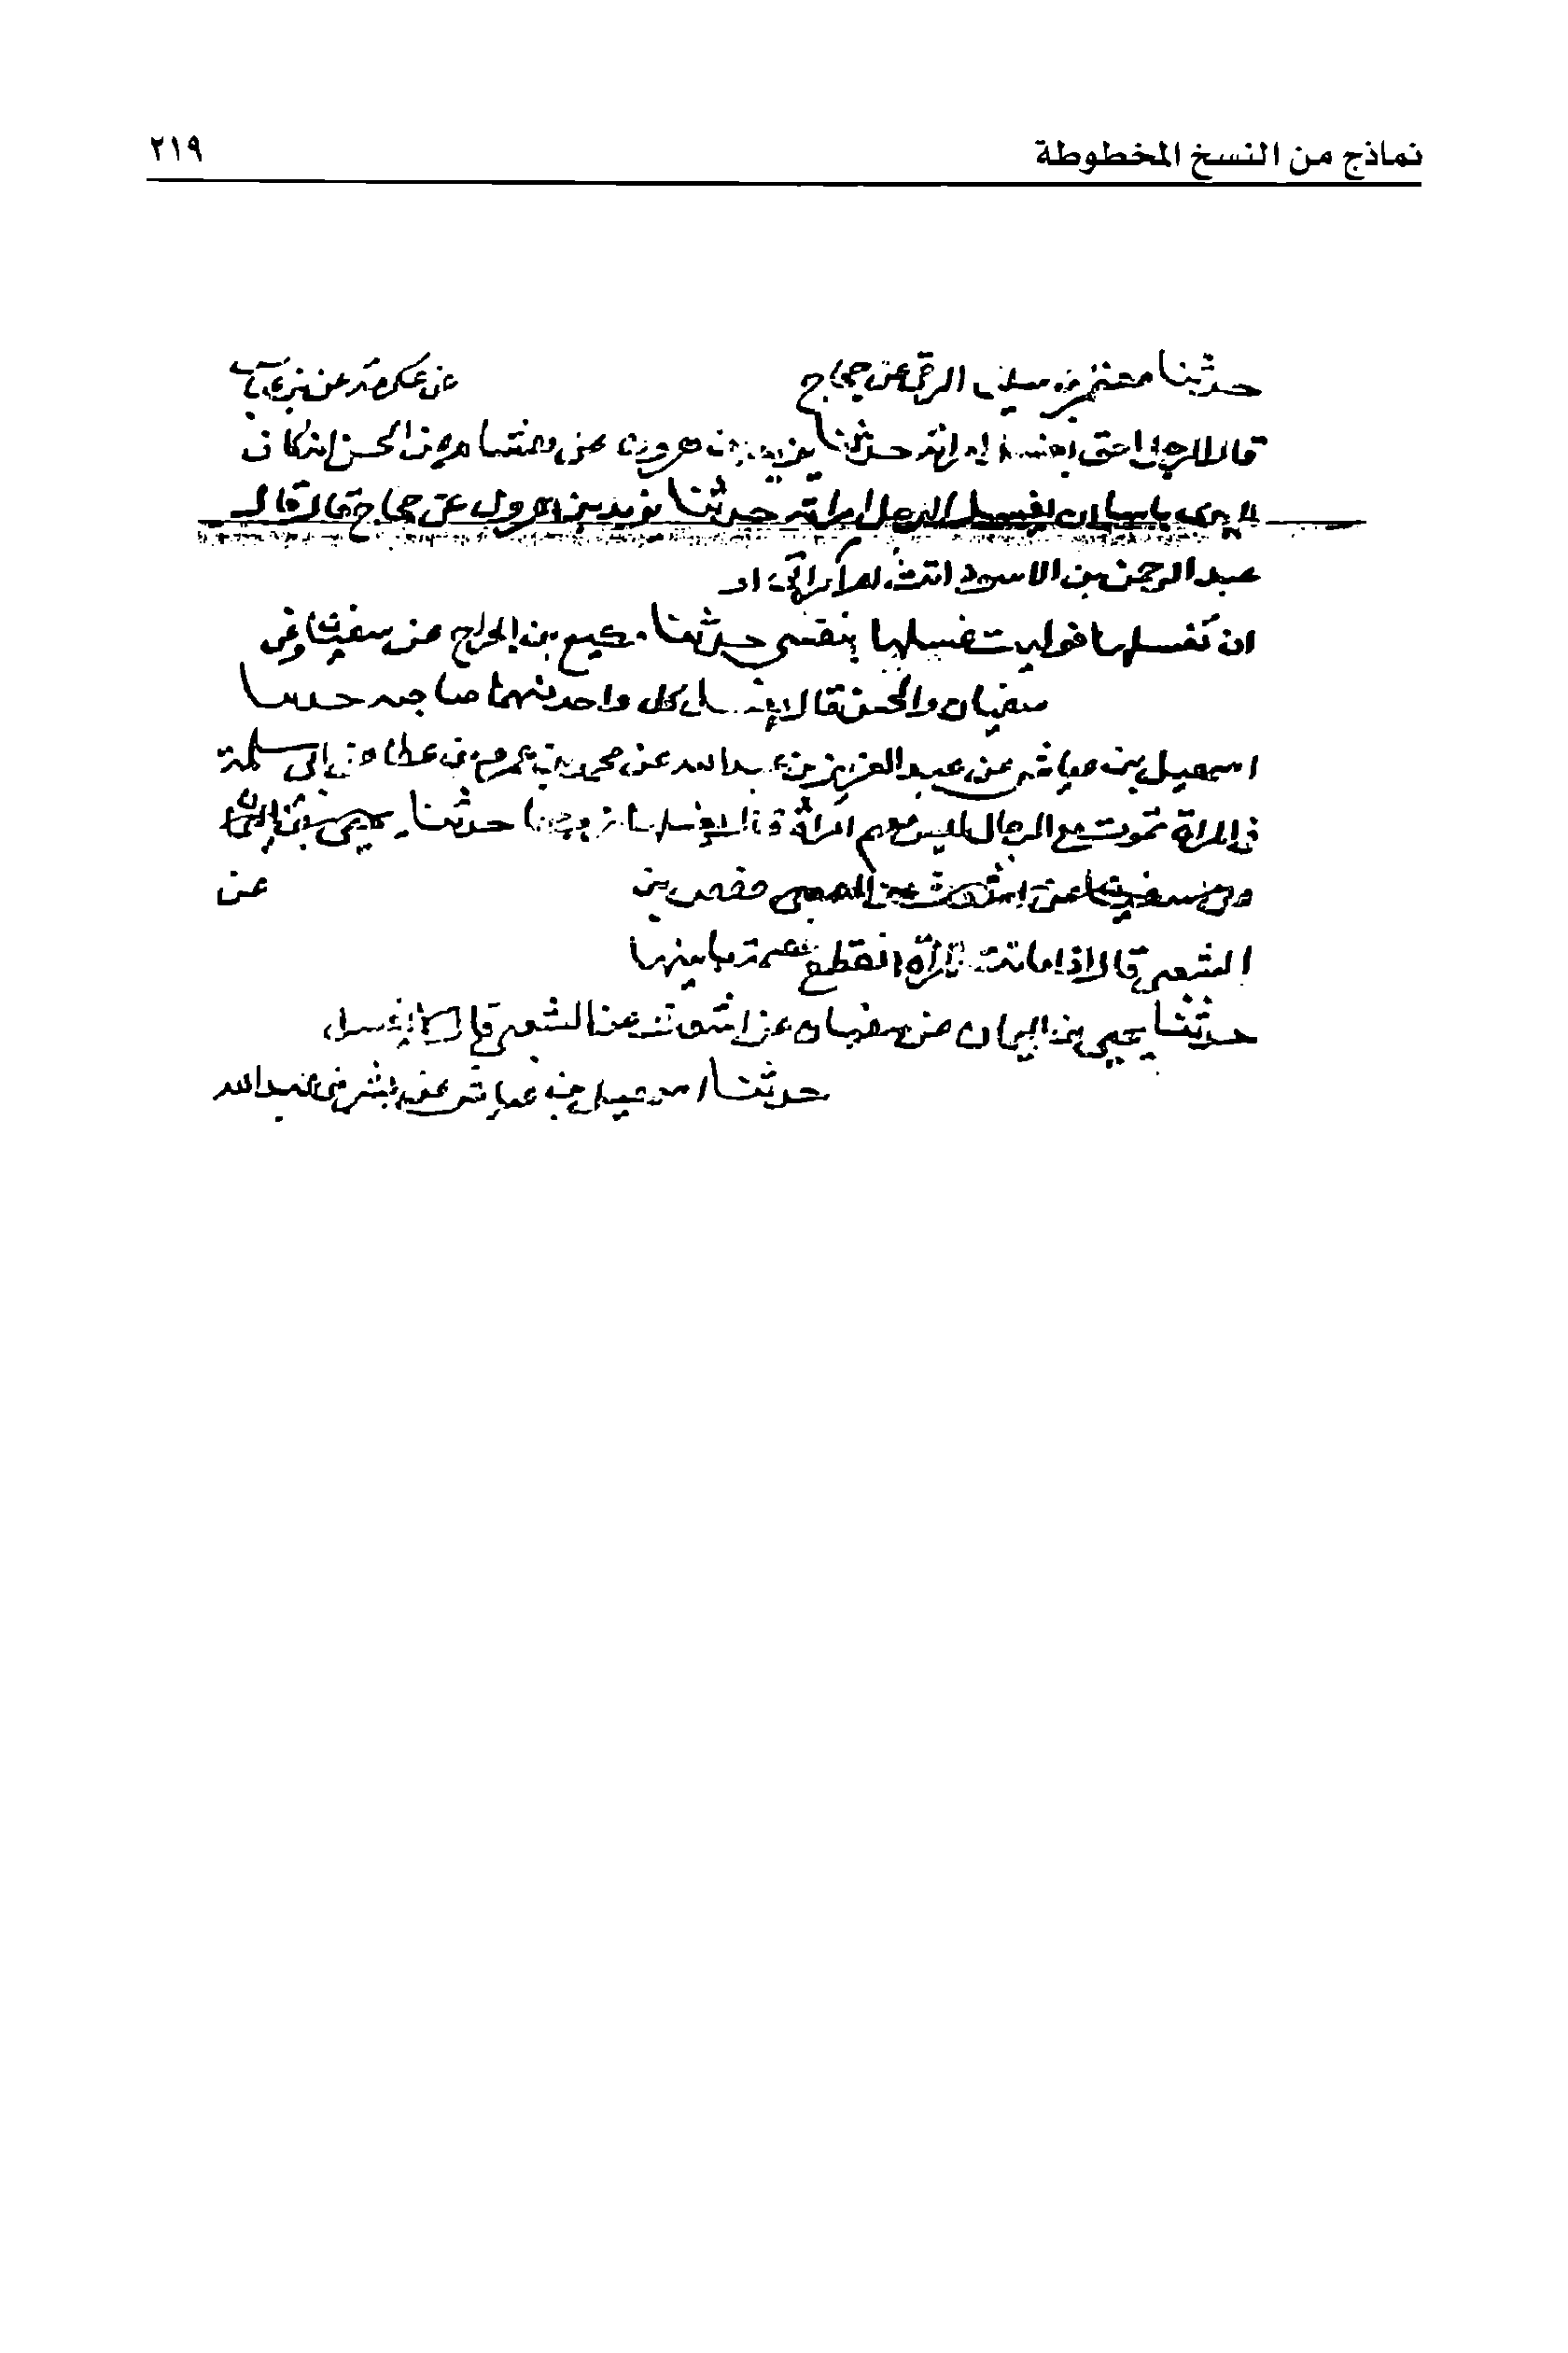 نماذج من النسخ المخطوطة ٢١٩
حدثنا معتمر بن سليمن الرقي عن حجاج عن عكرمة عن بن عباس
قال الرجل احق بغسل امراته حدثنا يزيد بن هرون عن هشام عن الحسن انه كان
لا يرى باسا ان يغسل الرجل امراته حدثنا يزيد بن هرون عن حجاج قال قال
عبد الرحمن بن الاسود ابت امراتي
ان تغسلها فوليت غسلها بنفسي حدثنا وكيع بن الجراح عن سفين
سفيان والحسن قالا يغسل كل واحد منهما صاحبه حدثنا
اسمعيل بن عياش عن عبد العزيز بن عبد الله عن محمد بن عمرو بن عطا عن ابي سلمة
في المراة تموت مع الرجال ليس معهم امراة قال يغسلها زوجها حدثنا يحيى بن
عن سفين عن اشعث عن الشعبي عن
الشعبي قال اذا ماتت المراة انقطع عصمة ما بينها
حدثنا يحيى بن اليمان عن سفيان عن اشعث عن الشعبي قال لا يغسل
حدثنا اسمعيل بن عياش عن بشر بن عبد الله